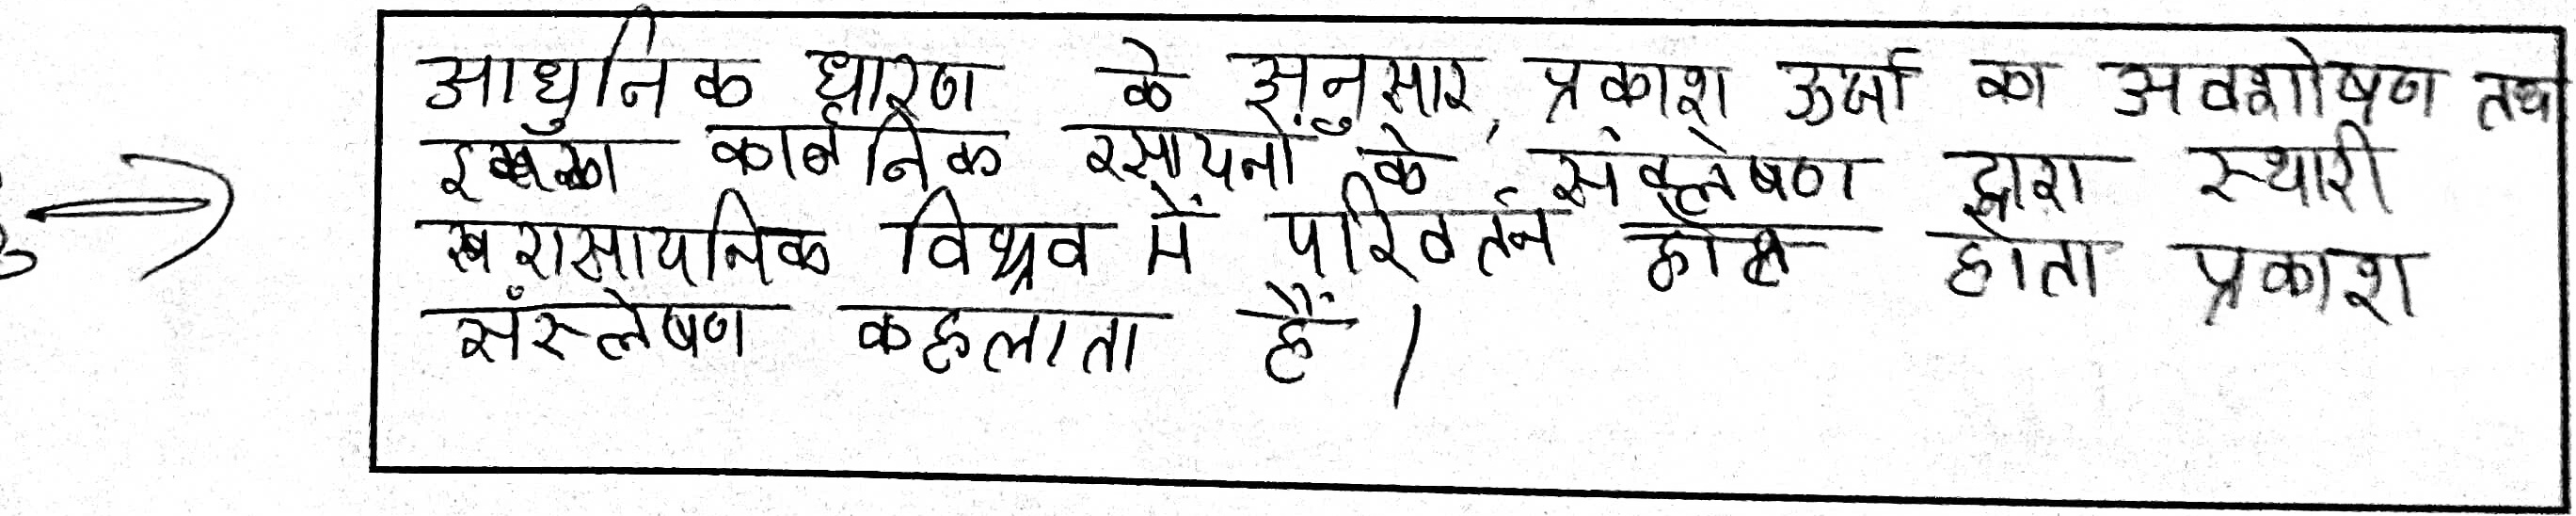 आधुनिक धारण के अनुसार, प्रकाश ऊर्जा का अवशोषण तथा
इसका कार्बनिक रसायनों के संश्लेषण द्वारा स्थारी
रासायनिक विभव में परिवर्तन होता प्रकाश
संस्लेषण कहलाता हैं।